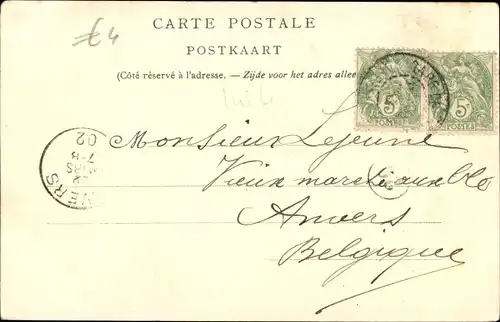 €4
CARTE POSTALE
POSTKAART
(Côté réservé à l'adresse. — Zijde voor het adres allee
5c 5c
POSTES POSTES
Monsieur Lejeune
Vieux marché aux blé
Anvers
Belgique
02
7-8
MRS